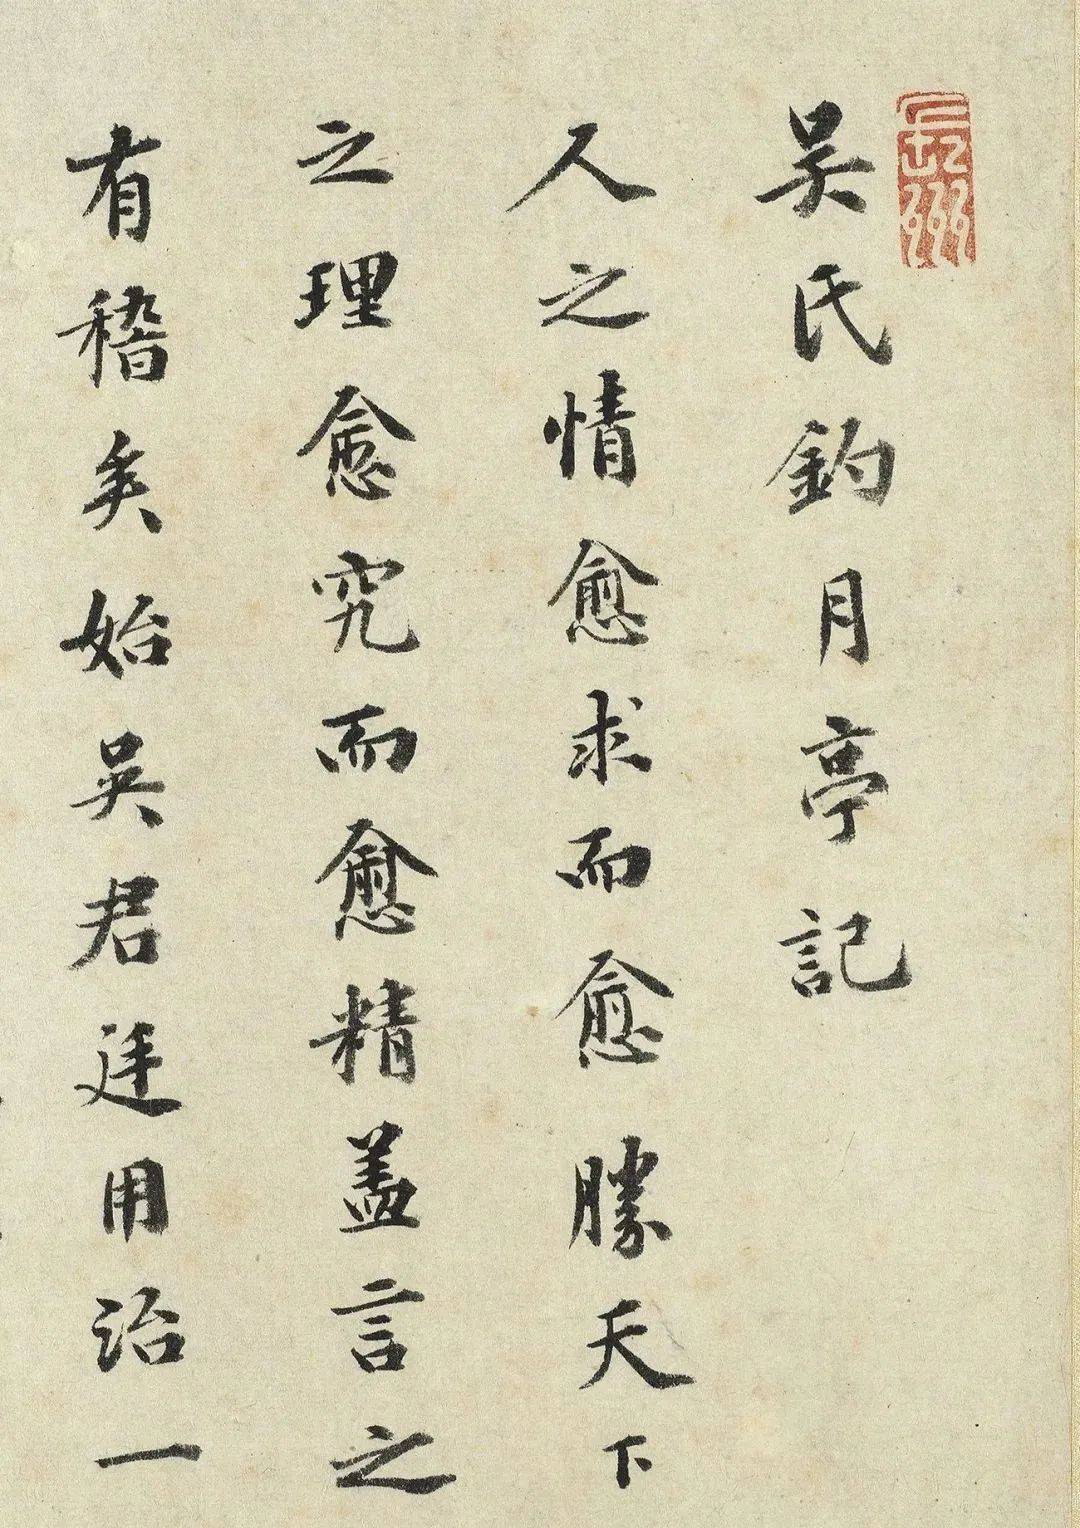 長洲
吴氏釣月亭記
人之情愈求而愈勝天下
之理愈究而愈精蓋言之
有稽矣始吴君廷用治一